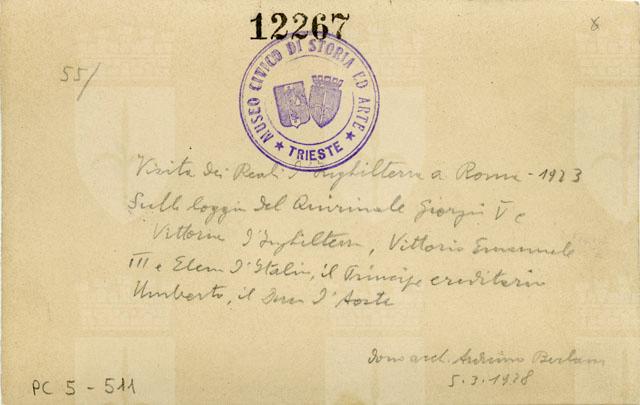 12267
55/
MUSEO CIVICO DI STORIA ED ARTE
★ TRIESTE ★
Visita dei Reali d'Inghilterra a Roma - 1923
Sulla loggia del Quirinale Giorgio V e
Vittoria d'Inghilterra, Vittorio Emanuele
III e Elena d'Italia, il Principe ereditario
Umberto, il Duca d'Aosta
dono arch.
5.3.1928
PC 5 - 511